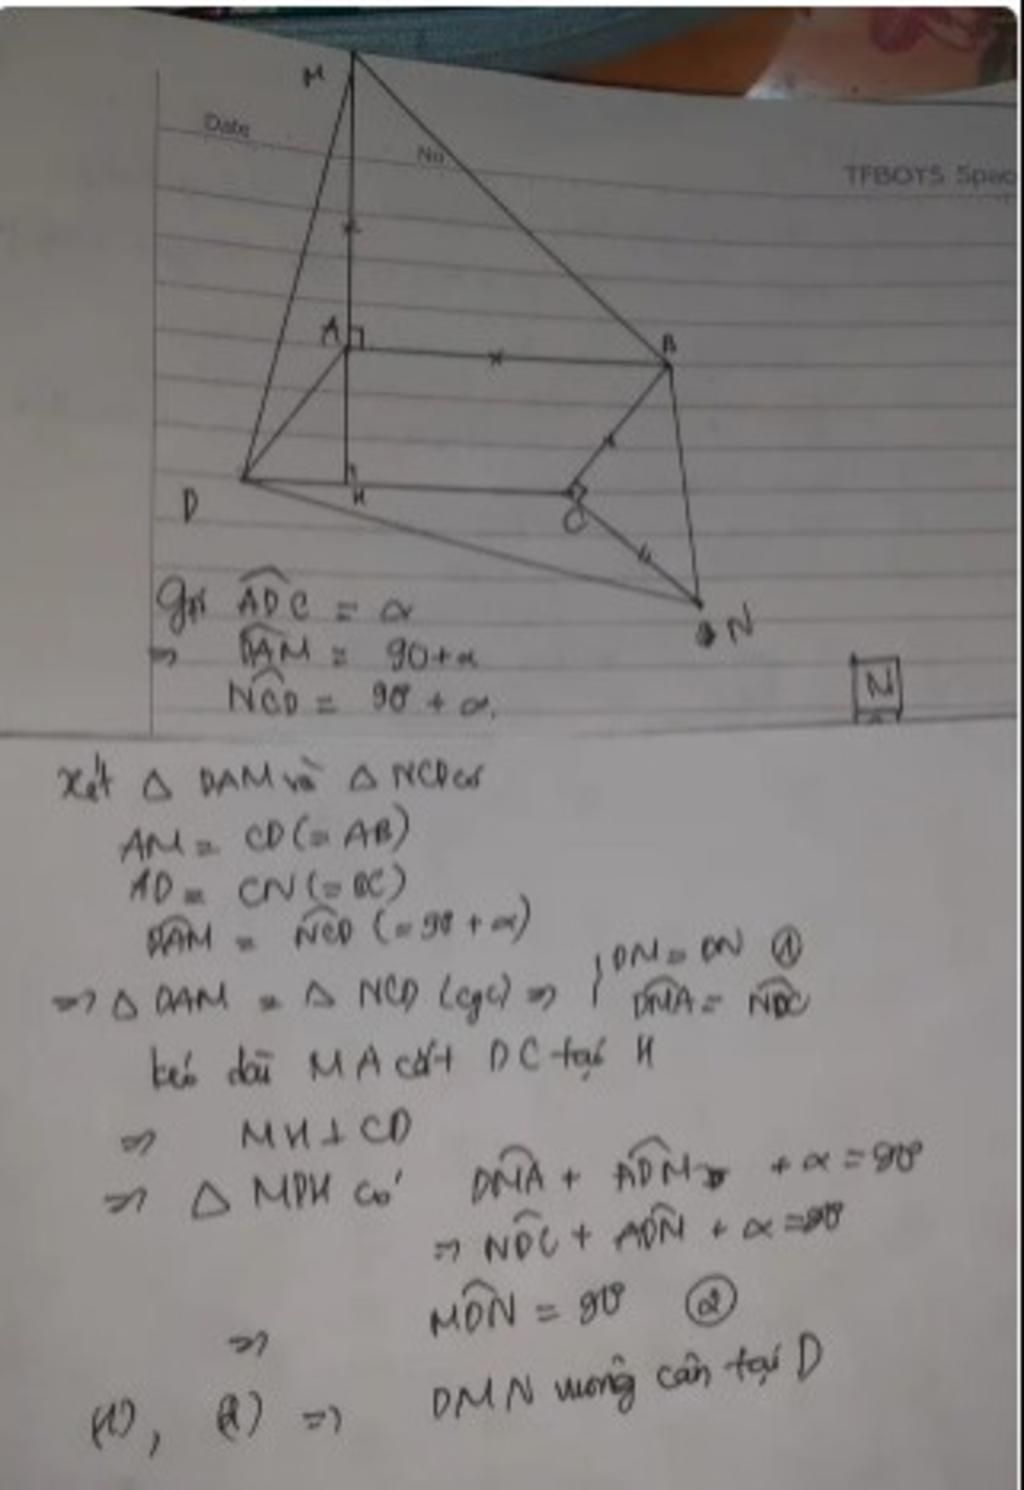 M
Date
No
TFBOYS Spac
A
B
D
H
C
N
Gọi ADC = α
=> DAM = 90+α
NCD = 90° + α.
N
Xét △ DAM và △ NCD có
AM = CD (= AB)
AD = CN (= BC)
DAM = NCD (= 90 + α)
=> △ DAM = △ NCD (cgc) => { DM = DN ①
DMA = NDC
kéo dài MA cắt DC tại H
=> MH ⊥ CD
=> △ MDH có DMA + ADM + α = 90°
=> NDC + ADM + α = 90°
=> MDN = 90° ②
(1), (2) => DMN vuông cân tại D